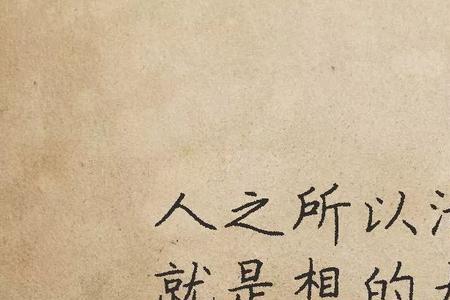 人之所以
就是相的